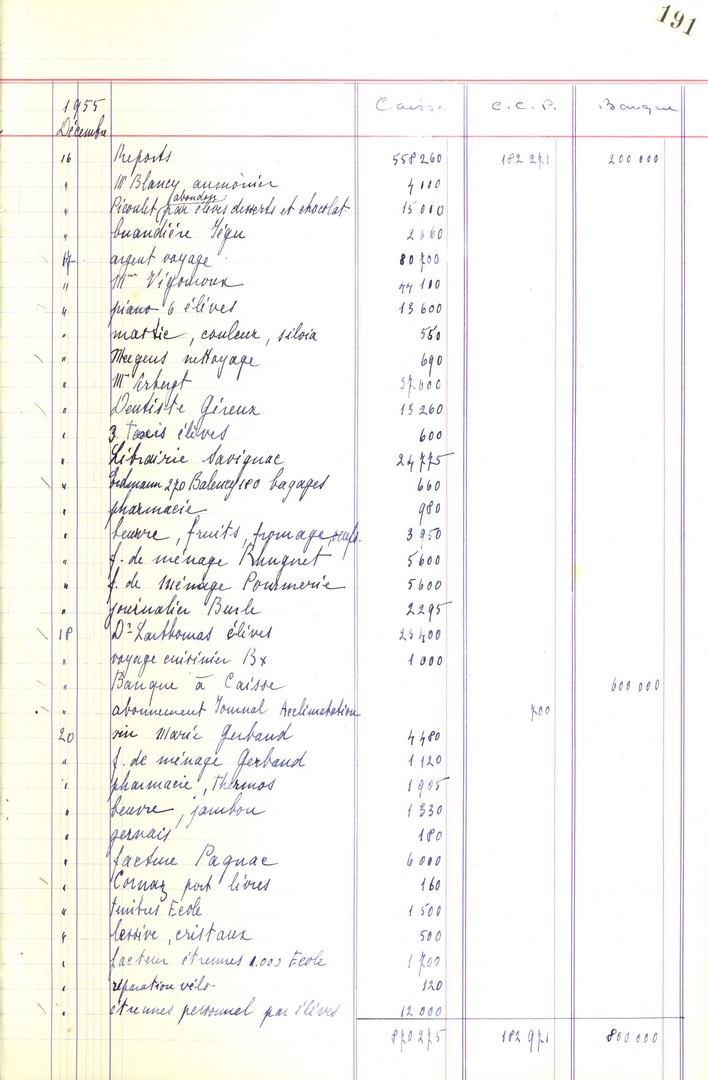 191
1955 Caisse C.C.P. Banque
Décembre
16 Reports 558 260 182 271 200 000
" Mr Blancy aumônier 4 000
" Picoulet (abondoss par élèves desserts et chocolat 15 000
" buandière Tégu 2 660
17 argent voyage 80 700
" Mme Vigouroux 44 100
" piano 6 élèves 13 600
" mastic, couleur, silvia 550
" Meegens nettoyage 690
" Mr Erbergt 37 600
" Dentiste Géreux 13 260
" 3 Taxis élèves 600
" Librairie Savignac 24 775
" Erdmann 270 Balency 180 bagages 660
" pharmacie 980
" beurre, fruits, fromage, oeufs. 3 950
" f. de ménage Rhugnet 5600
" f. de ménage Pommerie 5600
" journalier Burle 2295
18 Dr Larthomas élèves 23 400
" voyage cuisinier Bx 1 000
" Banque à Caisse 600 000
" abonnement Journal Acclimatation 700
20 vin Marie Gerbaud 4 480
" f. de ménage Gerbaud 1 120
" pharmacie, thermos 1 905
" beurre, jambon 1 330
" gervais 180
" facture Pagnac 6 000
" Cornaz port livres 160
" timbres Ecole 1 500
" lessive, cristaux 500
" facteur étrennes 1.000 Ecole 1 700
" réparation vélo 120
" étrennes personnel par élèves 12 000
870 275 182 971 800 000